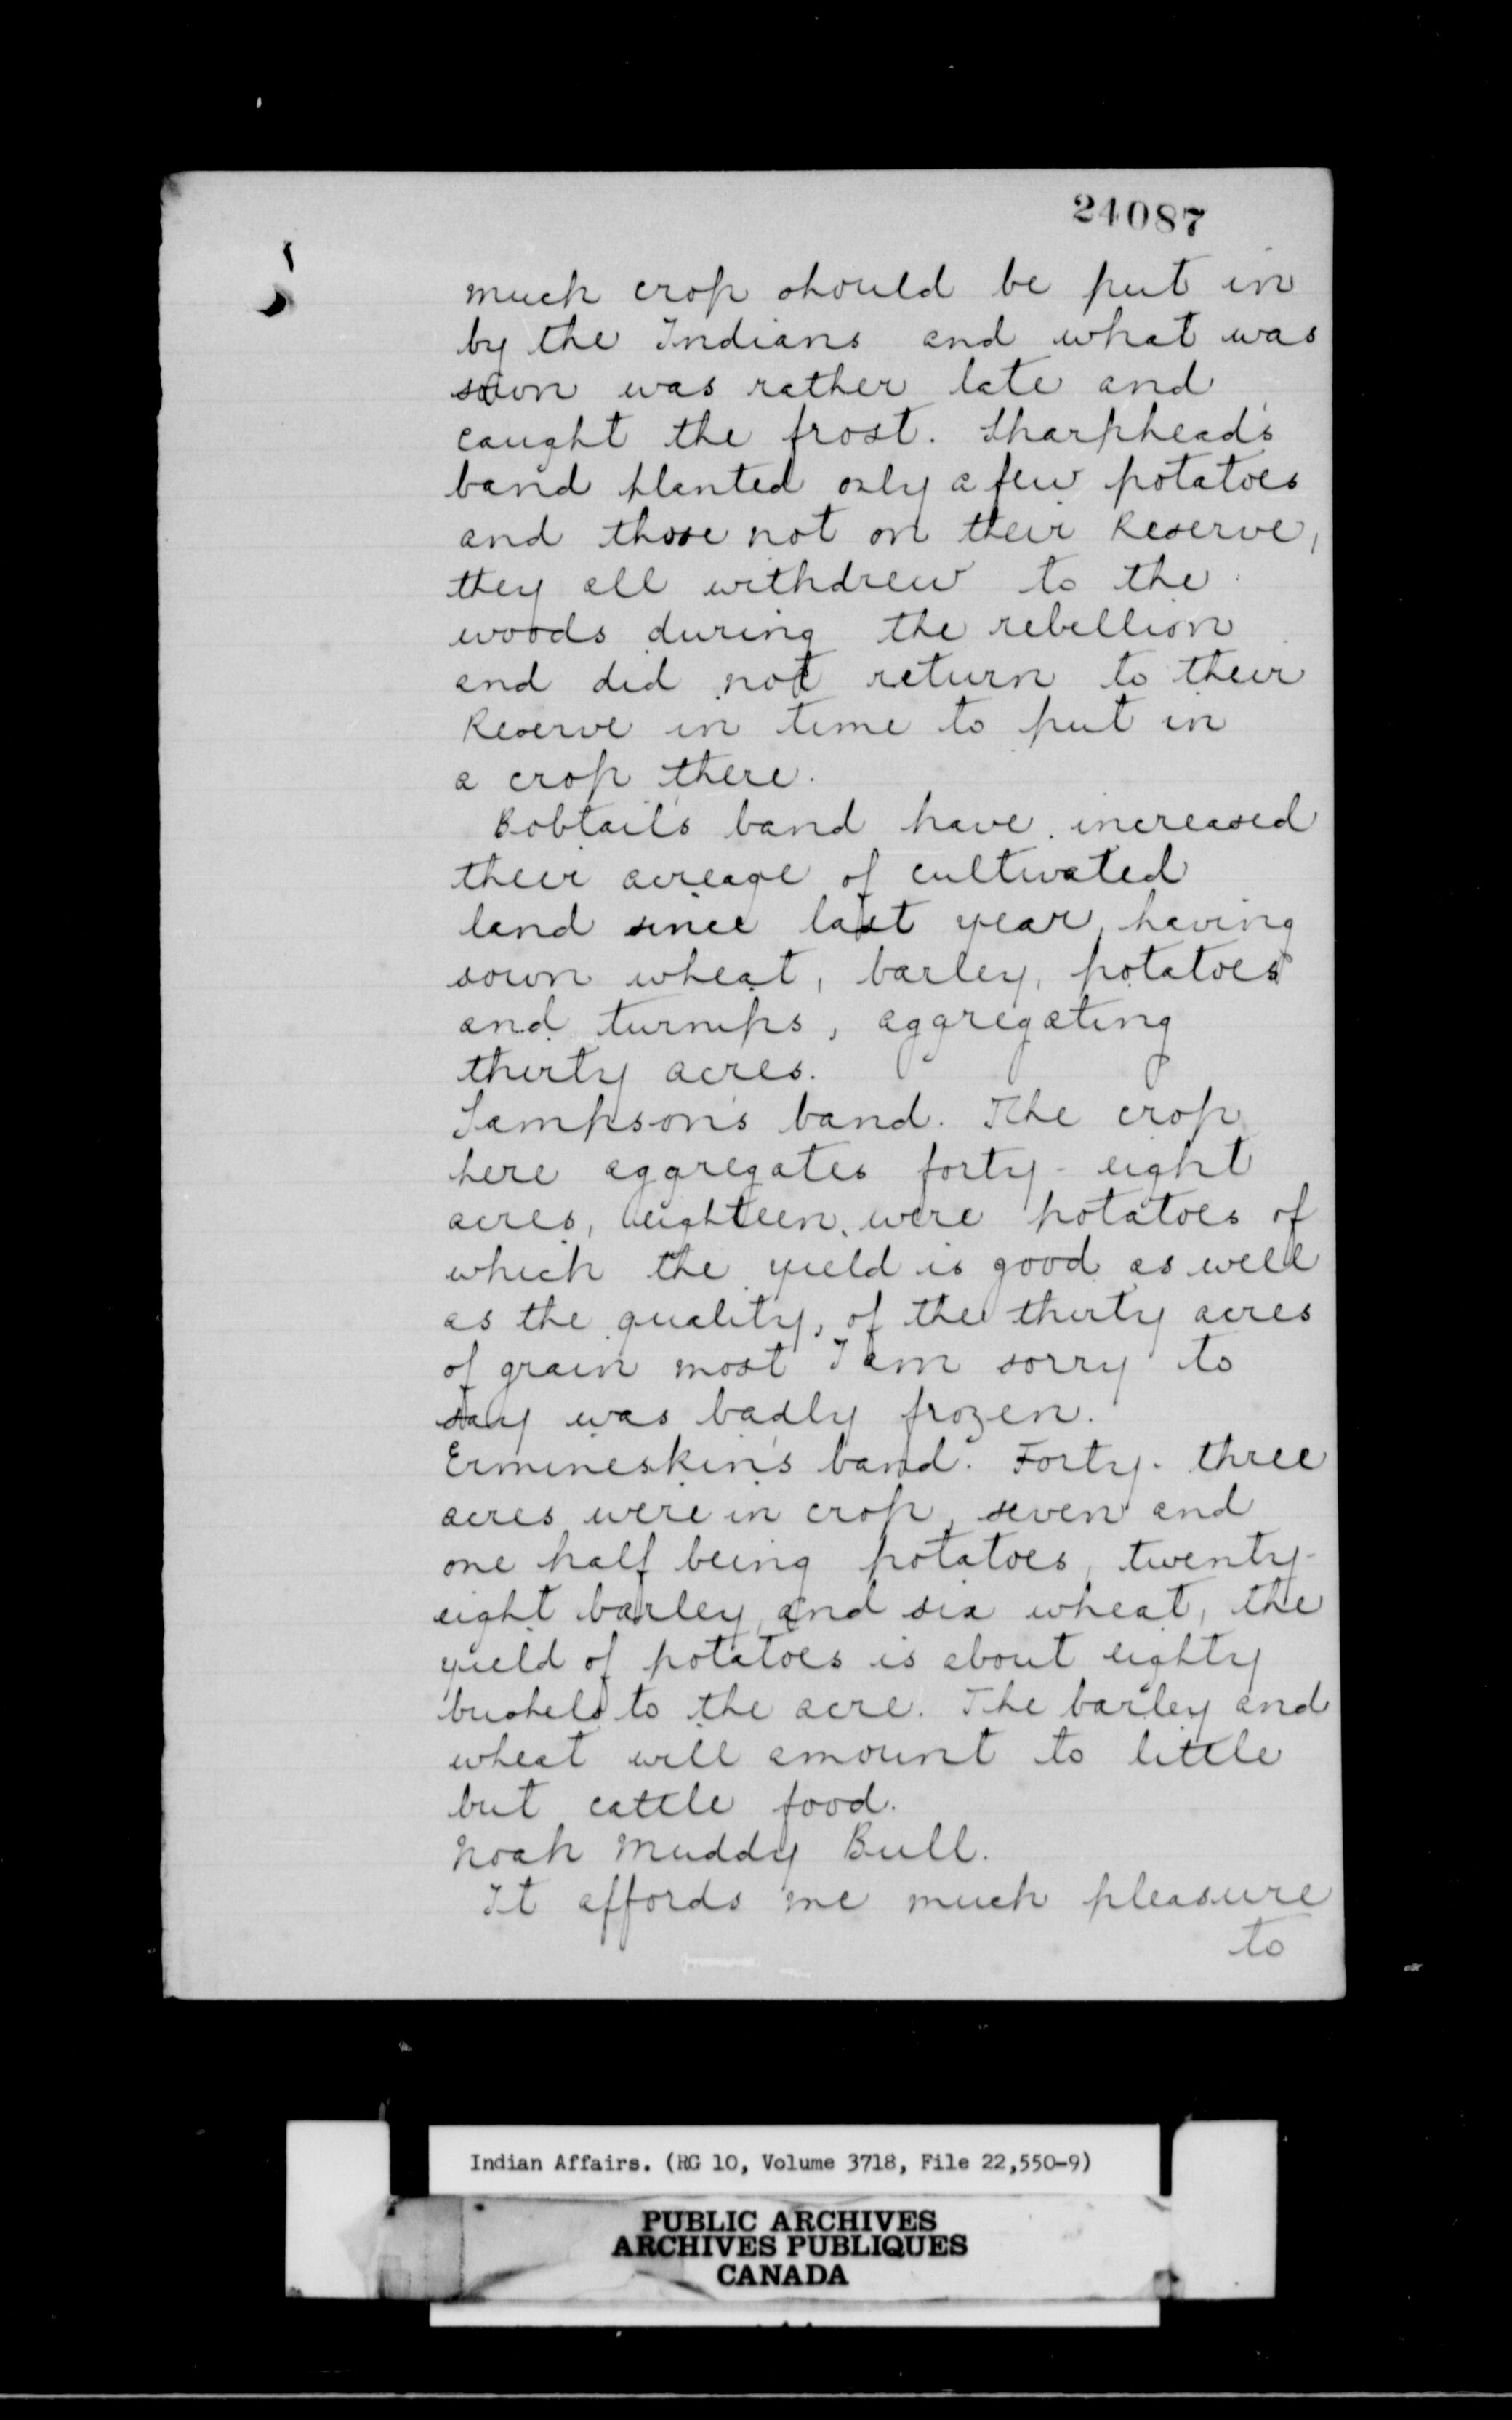 24087
much crop should be put in
by the Indians and what was
sown was rather late and
caught the frost. Sharphead's
band planted only a few potatoes
and those not on their Reserve,
they all withdrew to the
woods during the rebellion
and did not return to their
Reserve in time to put in
a crop there.
Bobtail's band have increased
their acreage of cultivated
land since last year, having
sown wheat, barley, potatoes
and turnips, aggregating
thirty acres.
Sampson's band. The crop
here aggregates forty-eight
acres, eighteen were potatoes of
which the yield is good as well
as the quality, of the thirty acres
of grain most I am sorry to
say was badly frozen.
Ermineskin's band. Forty-three
acres were in crop, seven and
one half being potatoes, twenty-
eight barley, and six wheat, the
yield of potatoes is about eighty
bushels to the acre. The barley and
wheat will amount to little
but cattle food.
Noah Muddy Bull.
It affords me much pleasure
to
Indian Affairs. (RG 10, Volume 3718, File 22,550-9)
PUBLIC ARCHIVES
ARCHIVES PUBLIQUES
CANADA